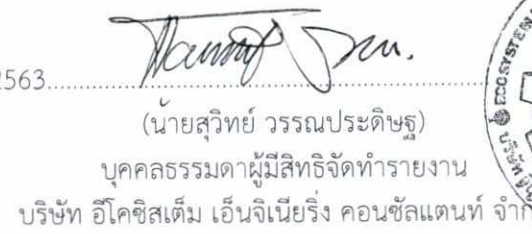 2563
(นายสุวิทย์ วรรณประดิษฐ)
บุคคลธรรมดาผู้มีสิทธิจัดทำรายงาน
บริษัท อีโคซิสเต็ม เอ็นจิเนียริ่ง คอนซัลแตนท์